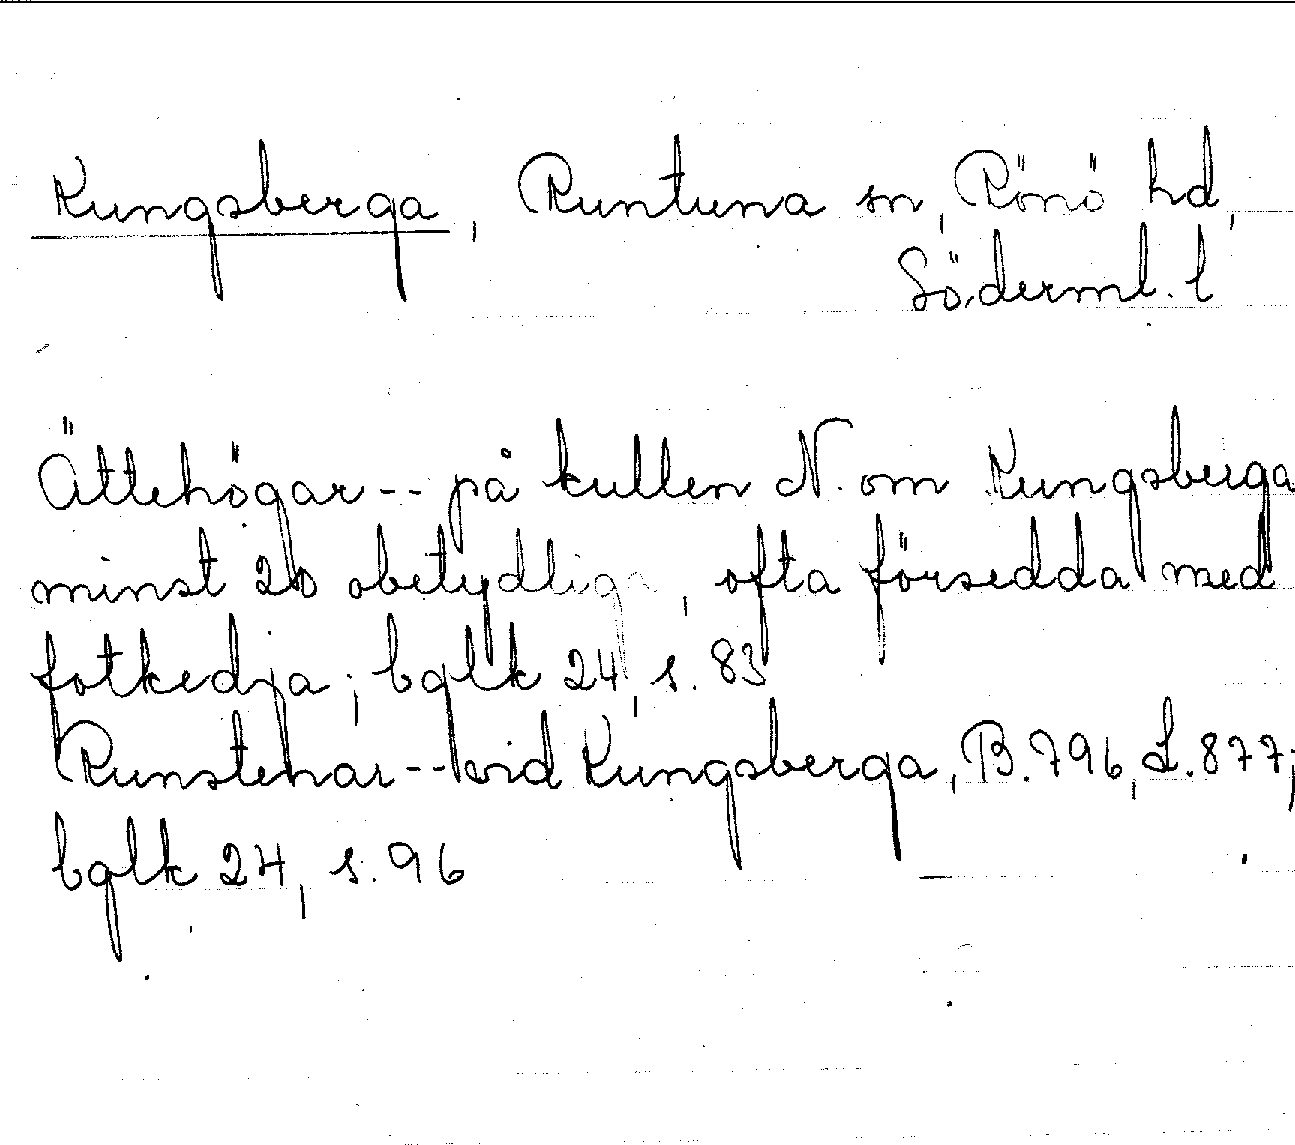 Kungsberga, Runtuna sn, Rönö hd,
Söderml. l
Ättehögar -- på kullen N. om Kungsberga
minst 20 obetydliga, ofta försedda med
fotkedja; bglk 24, s. 83
Runstenar -- vid Kungsberga, B. 796, L. 877;
bglk 24, s. 96